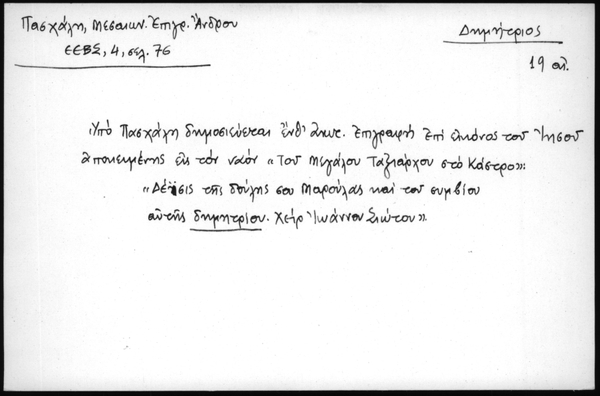 Πασχάλη, Μεσαιων. Ἐπιγρ. Ἄνδρου
ΕΕΒΣ, 4, σελ. 76
Δημήτριος
19 αἰ.
Ὑπό Πασχάλη δημοσιεύεται ἔνθ' ἀνωτ. ἐπιγραφή ἐπί εἰκόνος τοῦ Ἰησοῦ
ἀποκειμένης εἰς τόν ναόν «Τοῦ Μεγάλου Ταξιάρχου στό Κάστρο»:
«Δέησις τῆς δούλης σου Μαρούλας καί τοῦ συμβίου
αὐτῆς Δημητρίου. Χείρ Ἰωάννου Σιώτου».